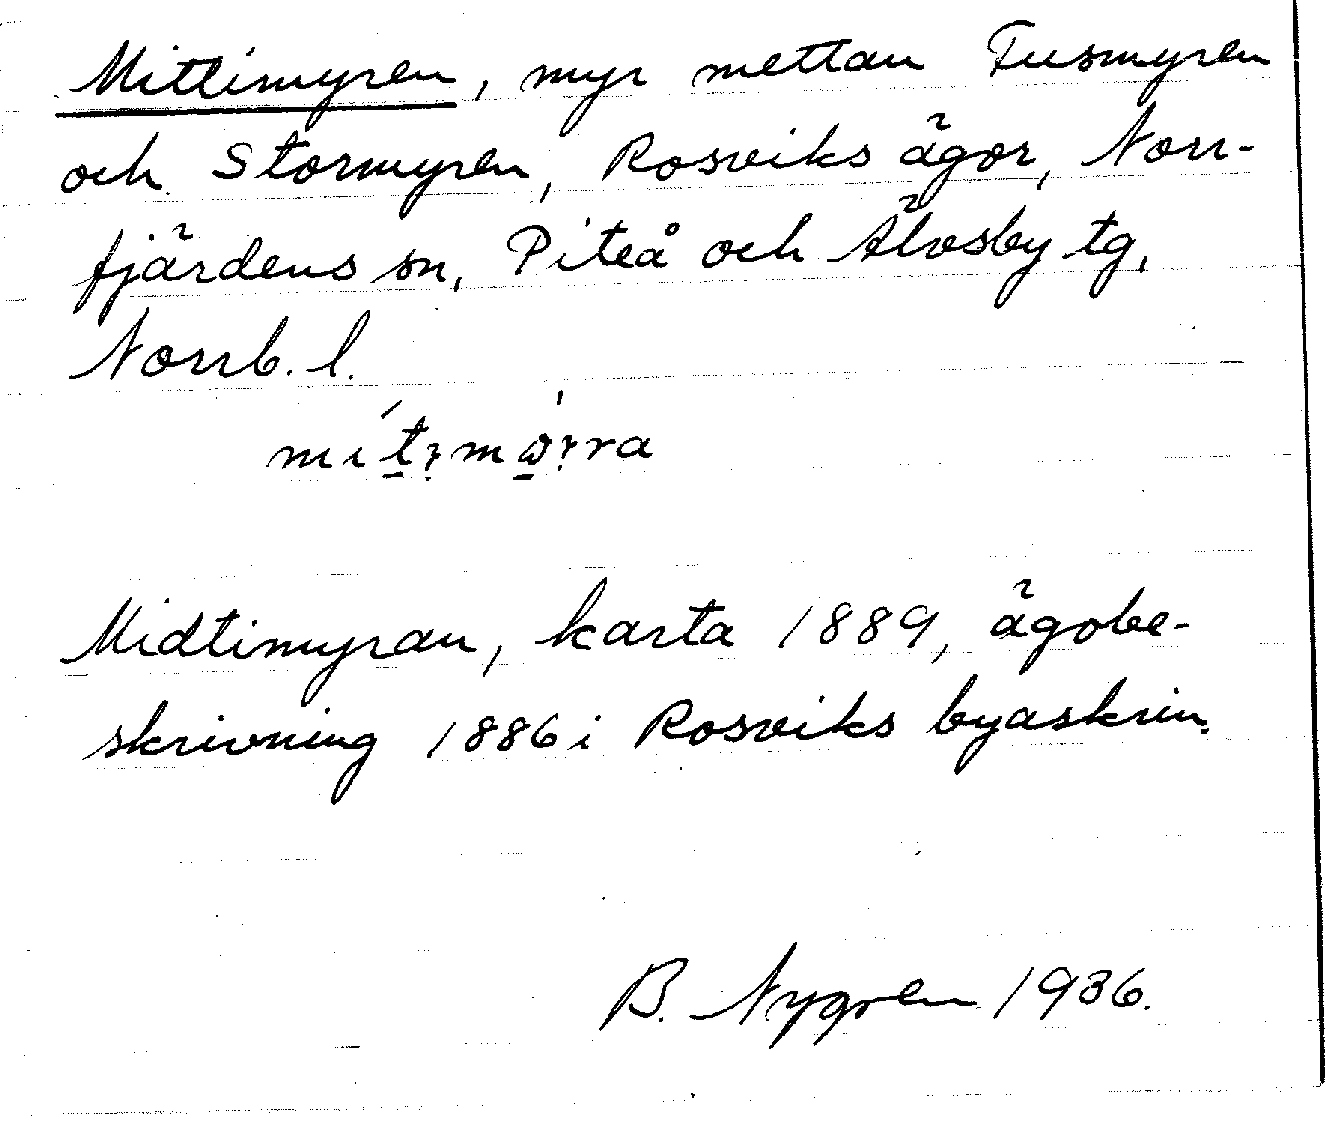 Mittimyren, myr mettan Fusmyren
och Stormyren, Rosviks ägor, Norr-
fjärdens sn, Piteå och Älvsby tg,
Norrb. l.
Midtimyran, karta 1889, ägobe-
skrivning 1886 i Rosviks byaskrin.
B. Nygren 1936.